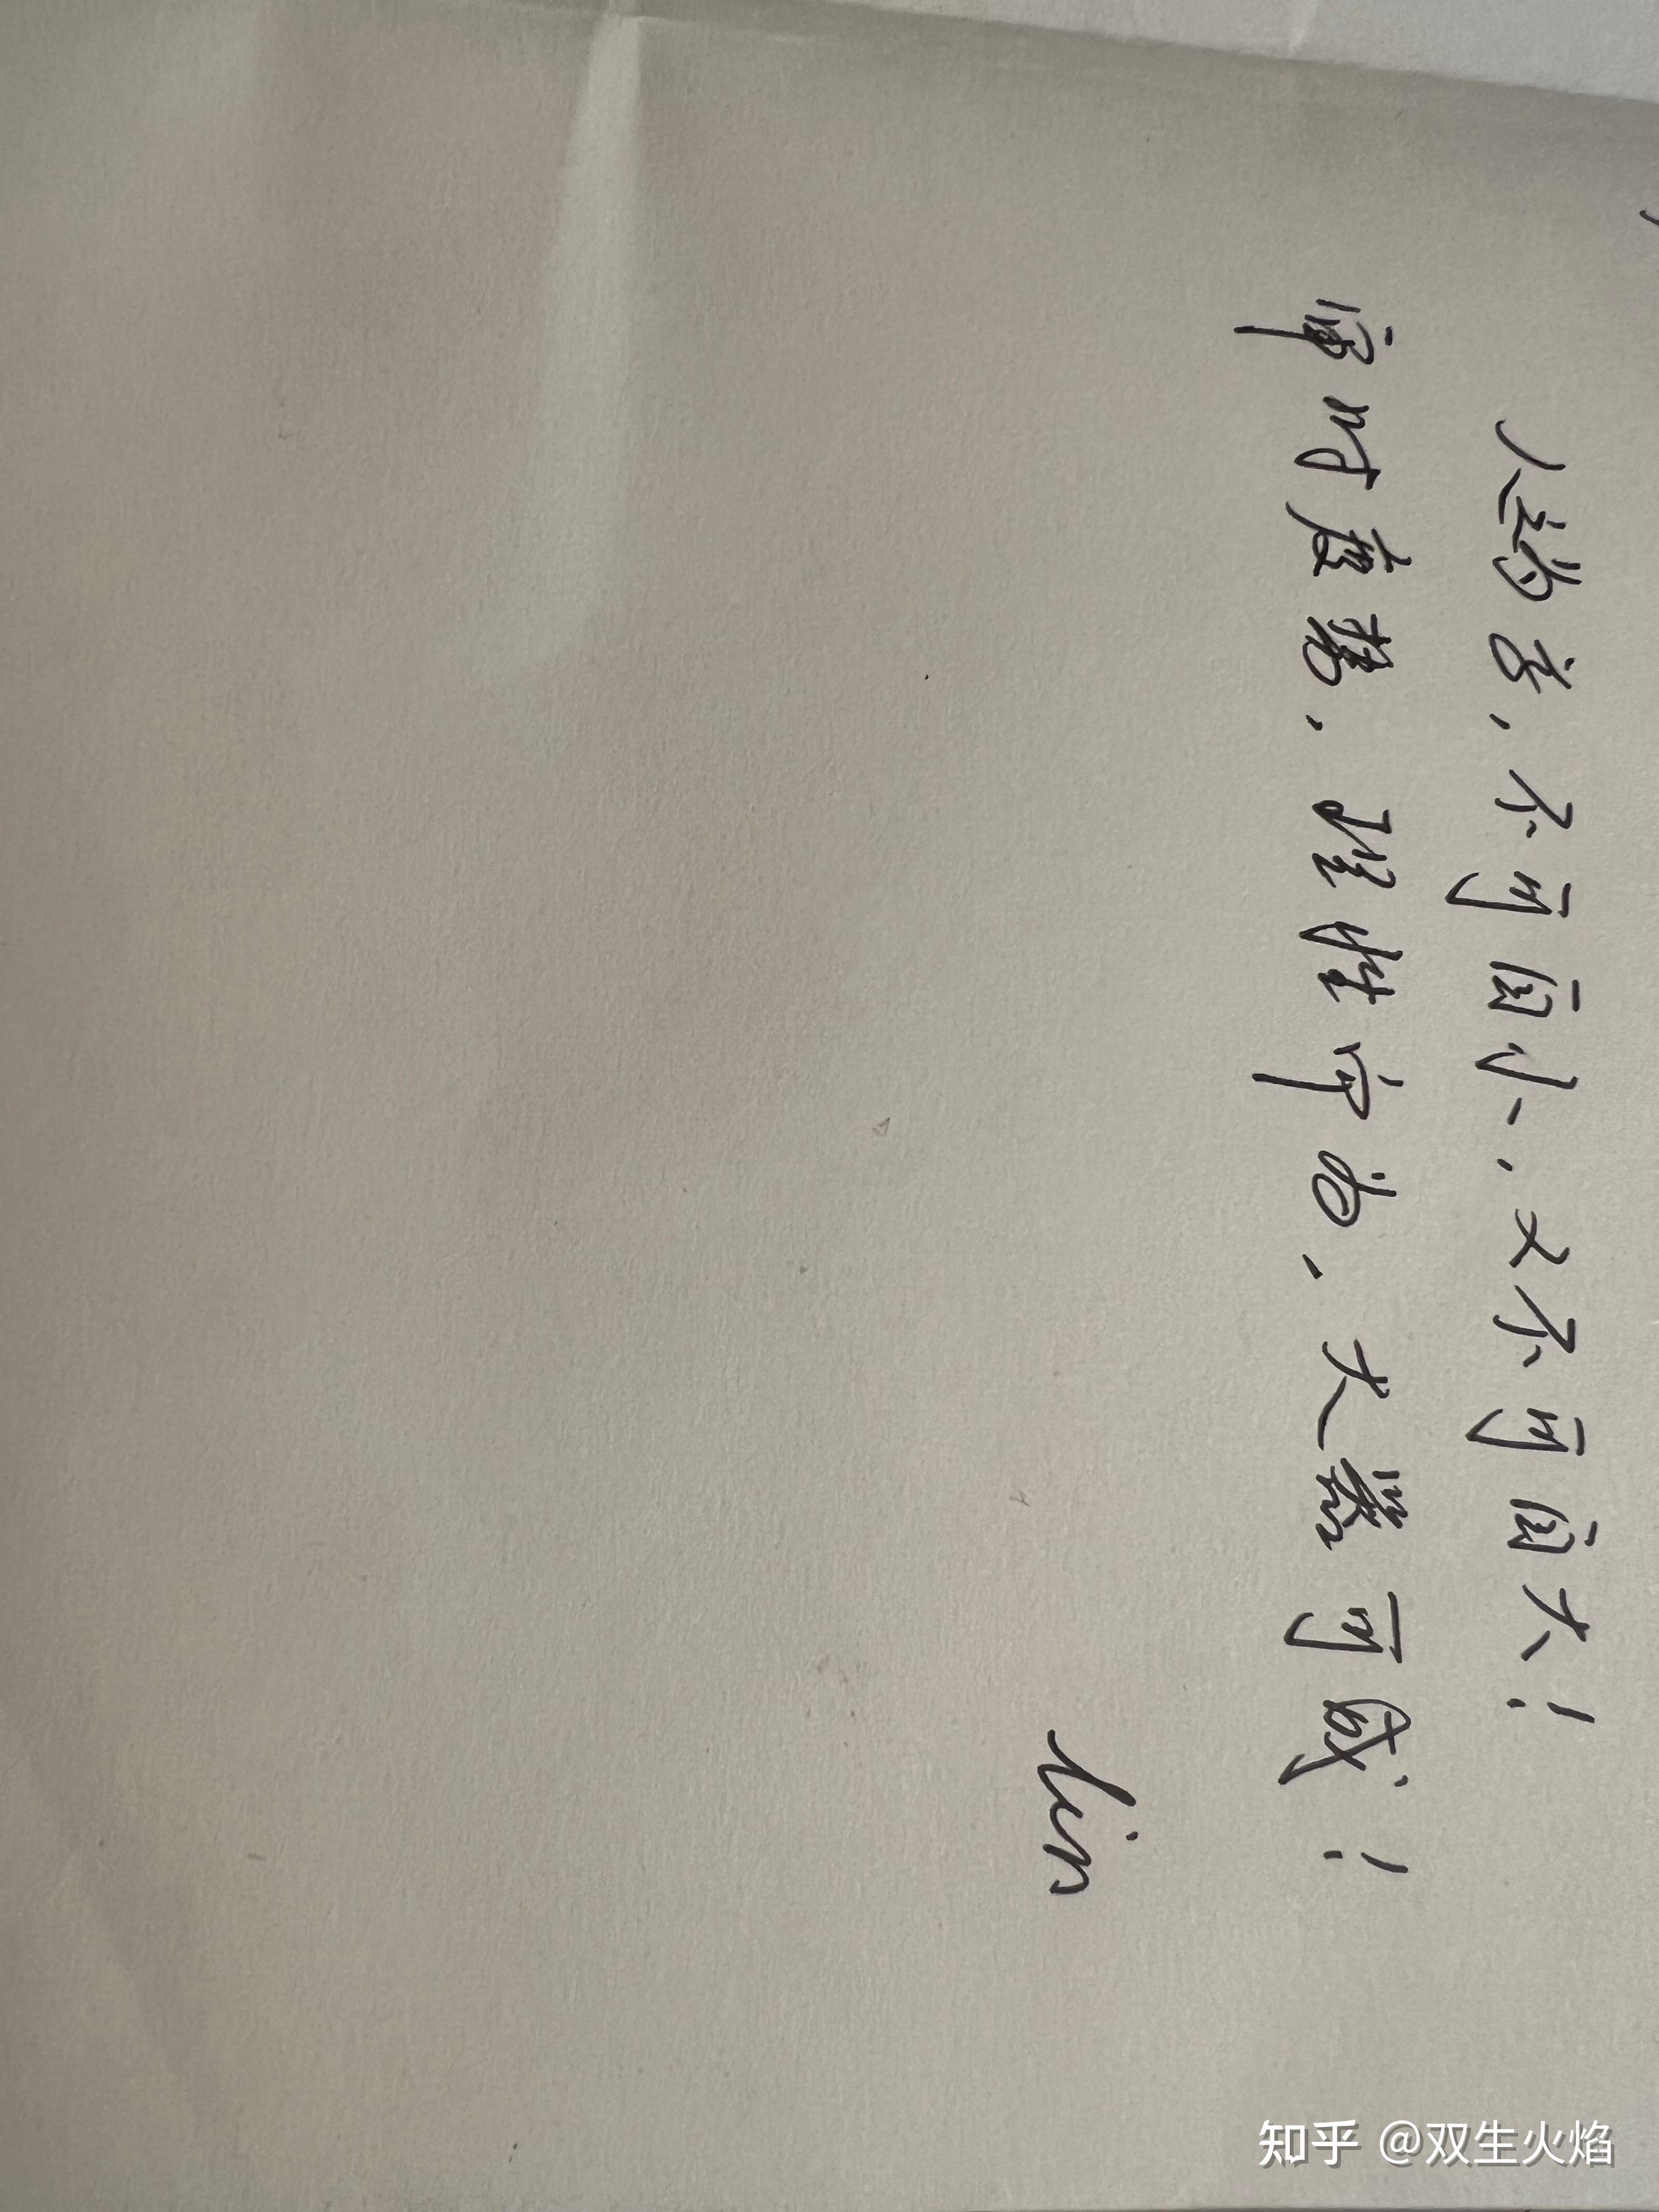 人道者,不可自小,又不可自大!
审时度势,理性守为,大器可成!
lin
知乎 @双生火焰